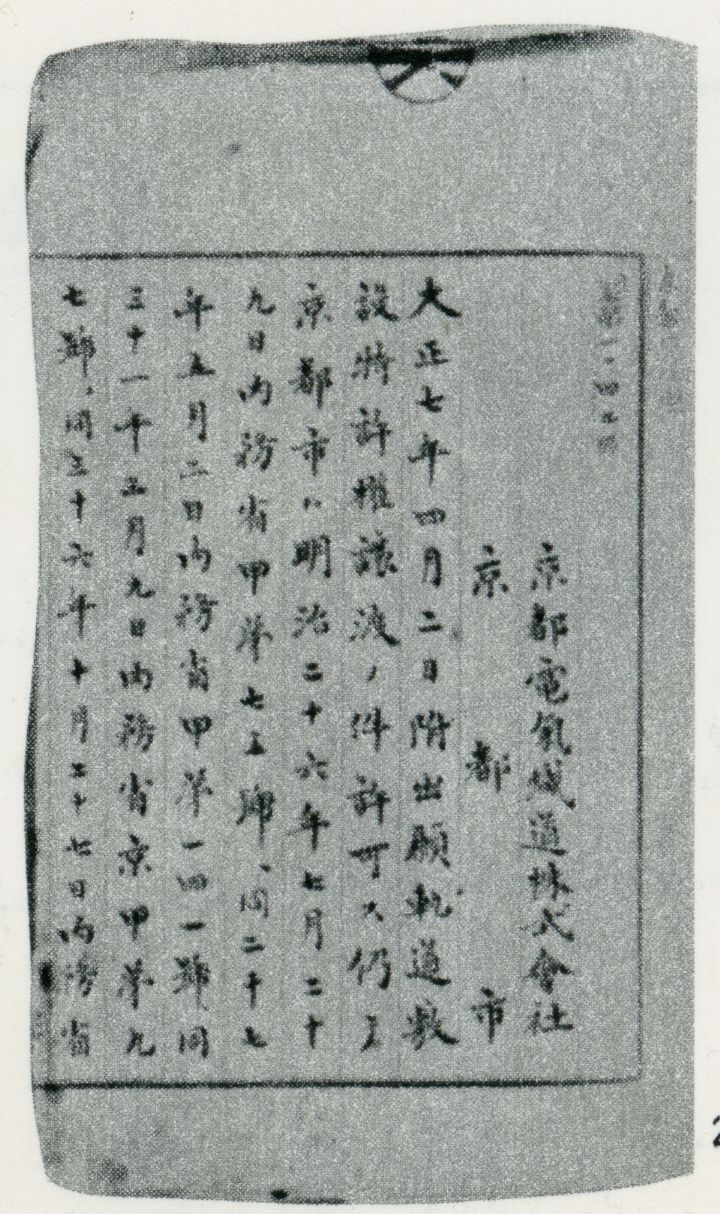 京都電氣鐵道株式會社
京都市
大正七年四月二日附出願軌道敷
設特許權讓渡ノ件許可ス仍テ
京都市ハ明治二十六年七月二十
九日内務省甲第七五號、同二十七
年五月二日内務省甲第一四一號同
三十一年三月九日内務省京甲第九
七號、同三十六年十月二十七日内務省